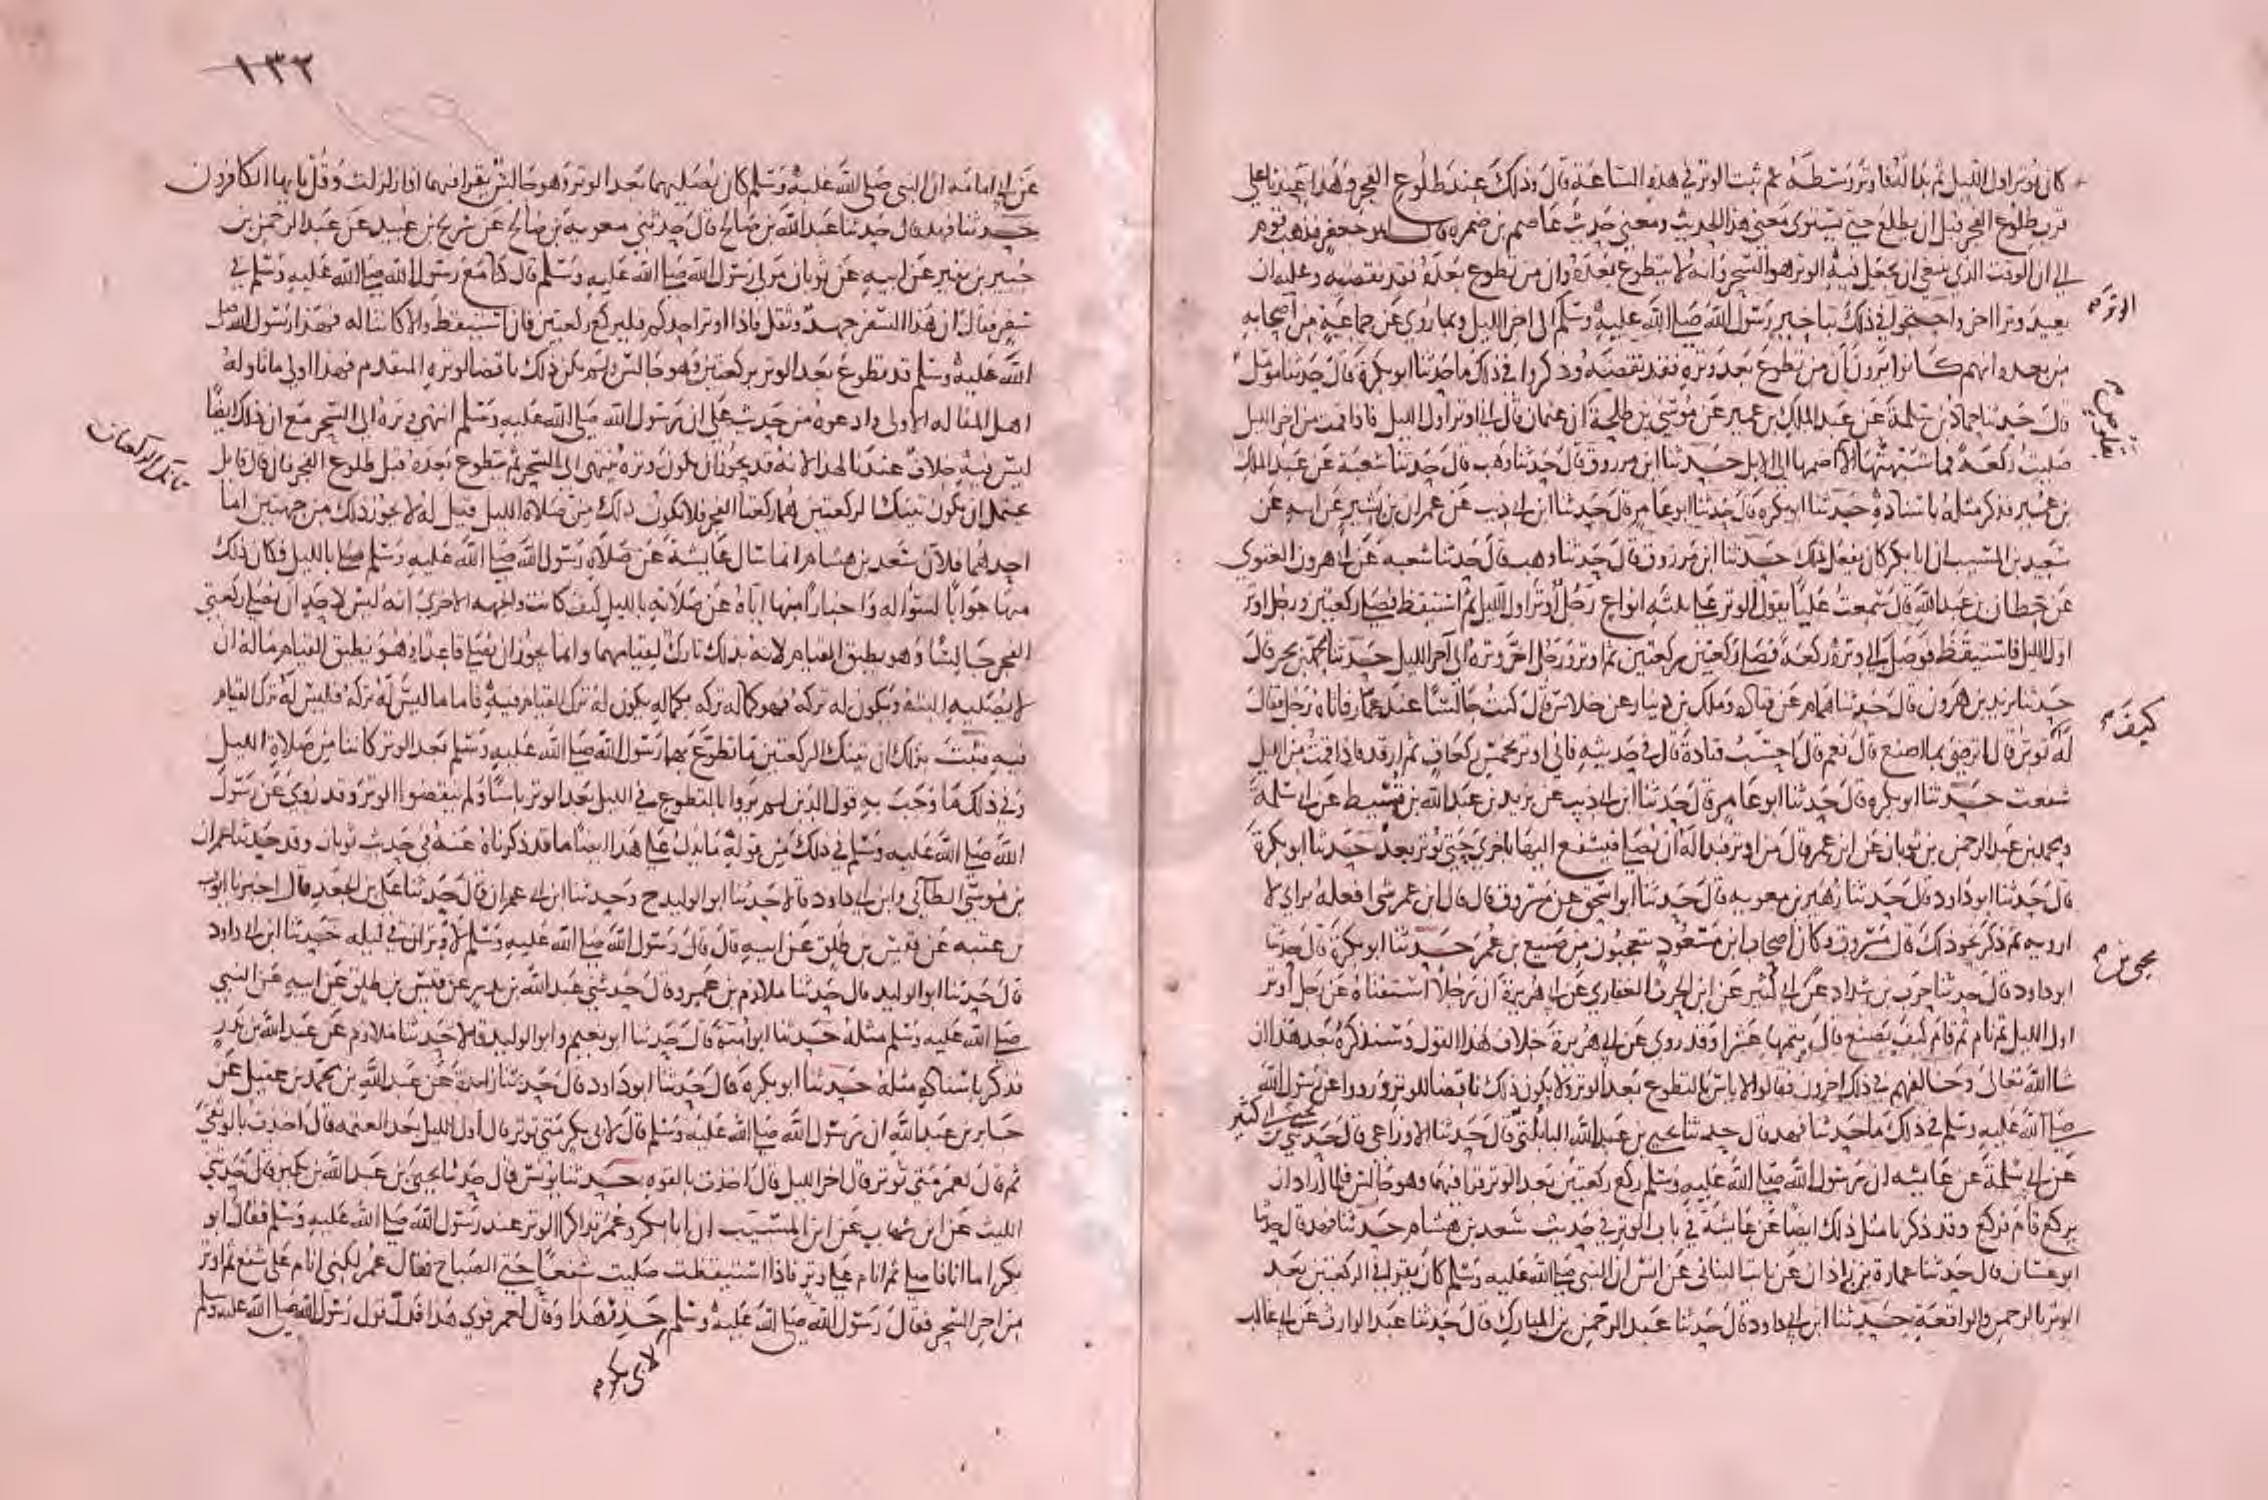 كان يوتر اول الليل ثم بدا له فاوتر وسطه ثم ثبت الوتر في هذه الساعة قال وذلك عند طلوع الفجر وهذا عندنا على
قرب طلوع الفجر قبل ان يطلع حتى يستوي معنى هذا الحديث ومعنى حديث عاصم بن ضمره قال ابو جعفر فذهب قوم
الى ان الوقت الذي ينبغي ان يجعل فيه الوتر هو السحر وانه لا يتطوع بعده وان من تطوع بعده فقد نقضه وعليه ان
الوتر
يعيد وترا اخر واحتجوا في ذلك بتاخير رسول الله صلى الله عليه وسلم الى اخر الليل وبما روي عن جماعة من اصحابه
من بعده انهم كانوا يرون ان من تطوع بعد وتره فقد نقضه وذكروا في ذلك ما حدثنا ابو بكرة قال حدثنا مؤمل
قال حدثنا حماد بن سلمة عن عبد الملك بن عمير عن موسى بن طلحة ان عثمان قال اني اوتر اول الليل فاذا قمت من اخر الليل
صليت ركعة فما شبهتها الا اضمها الى الابل حدثنا ابن مرزوق قال حدثنا وهب قال حدثنا شعبة عن عبد الملك
بن عمير فذكر مثله باسناده حدثنا ابو بكره قال حدثنا ابو عامر قال حدثنا ابن ابي ذيب عن عمران بن بشير عن ابيه عن
سعيد بن المسيب ان ابا بكر كان يفعل ذلك حدثنا ابن مرزوق قال حدثنا وهب قال حدثنا شعبه عن ابي هرون الغنوي
عن حطان بن عبد الله قال سمعت عليا يقول الوتر على ثلثه انواع رجل اوتر اول الليل ثم استيقظ فصلى ركعتين ورجل اوتر
اول الليل فاستيقظ فوصل الى وتره ركعة فصلى ركعتين ركعتين ثم اوتر ورجل اخر وتره الى آخر الليل حدثنا محمد بن بحر قال
حدثنا يزيد بن هرون قال حدثنا همام عن قتاده وملك بن دينار عن خلاس قال كنت جالسا عند عمار فاتاه رجل فقال
كيف
له توتر قال اترضى بما اصنع قال نعم قال احسب قتادة قال في حديثه فاني اوتر بخمس ركعات ثم ارقد فاذا قمت من الليل
شفعت حدثنا ابو بكره قال حدثنا ابو عامر قال حدثنا ابن ابي ذيب عن يزيد بن عبد الله بن قسيط عن ابي سلمة
ومحمد بن عبد الرحمن بن ثوبان عن ابن عمر قال من اوتر فبدا له ان يصلي فيشفع اليها باخرى حتى يوتر بعد حدثنا ابو بكرة
قال حدثنا ابو داود قال حدثنا زهير بن معويه قال حدثنا ابو اسحق عن مسروق قال قال ابن عمر شي افعله براي لا
ارويه ثم ذكر نحو ذلك قال مسروق وكان اصحاب ابن مسعود يتعجبون من صنيع بن عمر حدثنا ابو بكرة قال حدثنا
ابو داود قال حدثنا حرب بن شداد عن ابي كثير عن ابن الحرث الغفاري عن ابي هريرة ان رجلا استفتاه عن رجل اوتر
اول الليل ثم نام ثم قام كيف يصنع قال يتمها عشرا وقد روي عن ابي هريرة خلاف لهذا القول وسنذكره بعد هذا ان
شا الله تعالى وخالفهم في ذلك اخرون فقالوا لا باس بالتطوع بعد الوتر ولا يكون ذلك ناقضا للوتر ورووا عن رسول الله
صلى الله عليه وسلم في ذلك ما حدثنا فهد قال حدثنا يحيى بن عبد الله البابلتي قال حدثنا الاوزاعي قال حدثني
عن ابي سلمة عن عايشه ان رسول الله صلى الله عليه وسلم ركع ركعتين بعد الوتر قرا فيهما وهو جالس فلما اراد ان
يركع قام فركع وقد ذكرنا مثل ذلك ايضا عن عايشة في باب الوتر في حديث سعد بن هشام حدثنا فهد قال حدثنا
ابو غسان قال حدثنا عمارة بن زاذان عن ثابت البناني عن انس ان النبي صلى الله عليه وسلم كان يقرا في الركعتين بعد
الوتر بالرحمن والواقعة حدثنا ابن ابي داود قال حدثنا عبد الرحمن بن المبارك قال حدثنا عبد الوارث عن ابي غالب
١٣٢
عن ابي امامه ان النبي صلى الله عليه وسلم كان يصليهما بعد الوتر وهو جالس يقرا فيهما اذا زلزلت وقل يايها الكافرون
حدثنا فهد قال حدثنا عبد الله بن صالح قال حدثني معوية بن صالح عن شريح بن عبيد عن عبد الرحمن بن
جبير بن نفير عن ابيه عن ثوبان مولى رسول الله صلى الله عليه وسلم قال كنا مع رسول الله صلى الله عليه وسلم في
سفر فقال ان هذا السفر جهد وثقل فاذا اوتر احدكم فليركع ركعتين فان استيقظ والا كانتا له فهذا رسول الله صلى
الله عليه وسلم قد تطوع بعد الوتر بركعتين وهو جالس ولم يكن ذلك ناقضا لوتره المتقدم فهذا اولى مما تاوله
اهل المقاله الاولى وادعوه من حديث علي ان رسول الله صلى الله عليه وسلم انتهى وتره الى السحر مع ان ذلك ايضا
ليس فيه خلاف عندنا لهذا لانه قد يجوز ان يكون وتره ينتهى الى السحر ثم يتطوع بعده قبل طلوع الفجر فان قال قايل
يحتمل ان يكون تينك الركعتين هما ركعتا الفجر فلا يكون ذلك من صلاة الليل قيل له لا يجوز ذلك من جهتين اما
احدهما فلان سعد بن هشام انما سال عايشة عن صلاة رسول الله صلى الله عليه وسلم بالليل فكان ذلك
منها جوابا لسؤاله واخبارا منها اياه عن صلاته بالليل كيف كانت والجهه الاخرى انه ليس لاحد ان يصلي ركعتي
الفجر جالسا وهو يطيق القيام لانه بذلك تارك لقيامهما وانما يجوز ان يصلي قاعدا وهو يطيق القيام ماله ان
لا يصليه البتة ويكون له تركه فهو كما له تركه بكماله يكون له ترك القيام فيه فاما ما ليس له تركه فليس له ترك القيام
فيه فثبت بذلك ان تينك الركعتين ما تطوع بهما رسول الله صلى الله عليه وسلم بعد الوتر كانتا من صلاة الليل
وفي ذلك ما وجب به قول الذين لم يروا بالتطوع في الليل بعد الوتر باسا ولم ينقضوا الوتر وقد روي عن رسول
الله صلى الله عليه وسلم في ذلك من قوله ما يدل على هذا ايضا ما قد ذكرناه عنه في حديث ثوبان وقد حدثنا عمران
بن موسى الطائي وابن ابي داود قالا حدثنا ابو الوليد ح وحدثنا ابن ابي عمران قال حدثنا علي بن الجعد قال اخبرنا ايوب
بن عتبه عن قيس بن طلق عن ابيه قال قال رسول الله صلى الله عليه وسلم لا وتران في ليله حدثنا ابن ابي داود
قال حدثنا ابو الوليد قال حدثنا ملازم بن عمرو قال حدثني عبد الله بن بدر عن قيس بن طلق عن ابيه عن النبي
صلى الله عليه وسلم مثله حدثنا ابو امية قال حدثنا ابو نعيم وابو الوليد قالا حدثنا ملازم عن عبد الله بن بدر
فذكر باسناده مثله حدثنا ابو بكره قال حدثنا ابو داود قال حدثنا زايدة عن عبد الله بن محمد بن عقيل عن
جابر بن عبد الله ان رسول الله صلى الله عليه وسلم قال لابي بكر متى توتر قال اول الليل بعد العتمه قال اخذت بالوثقى
ثم قال لعمر متى توتر قال اخر الليل قال اخذت بالقوه حدثنا يونس قال حدثنا يحيى بن عبد الله بن بكير قال حدثني
الليث عن ابن شهاب عن ابن المسيب ان ابا بكر وعمر تذاكرا الوتر عند رسول الله صلى الله عليه وسلم فقال ابو
بكر اما انا فاصلي ثم انام على وتر فاذا استيقظت صليت شفعا حتى الصباح فقال عمر لكني انام على شفع ثم اوتر
من اخر السحر فقال رسول الله صلى الله عليه وسلم حذر هذا وقال لعمر قوي هذا فدل قول رسول الله صلى الله عليه وسلم
لابي بكر